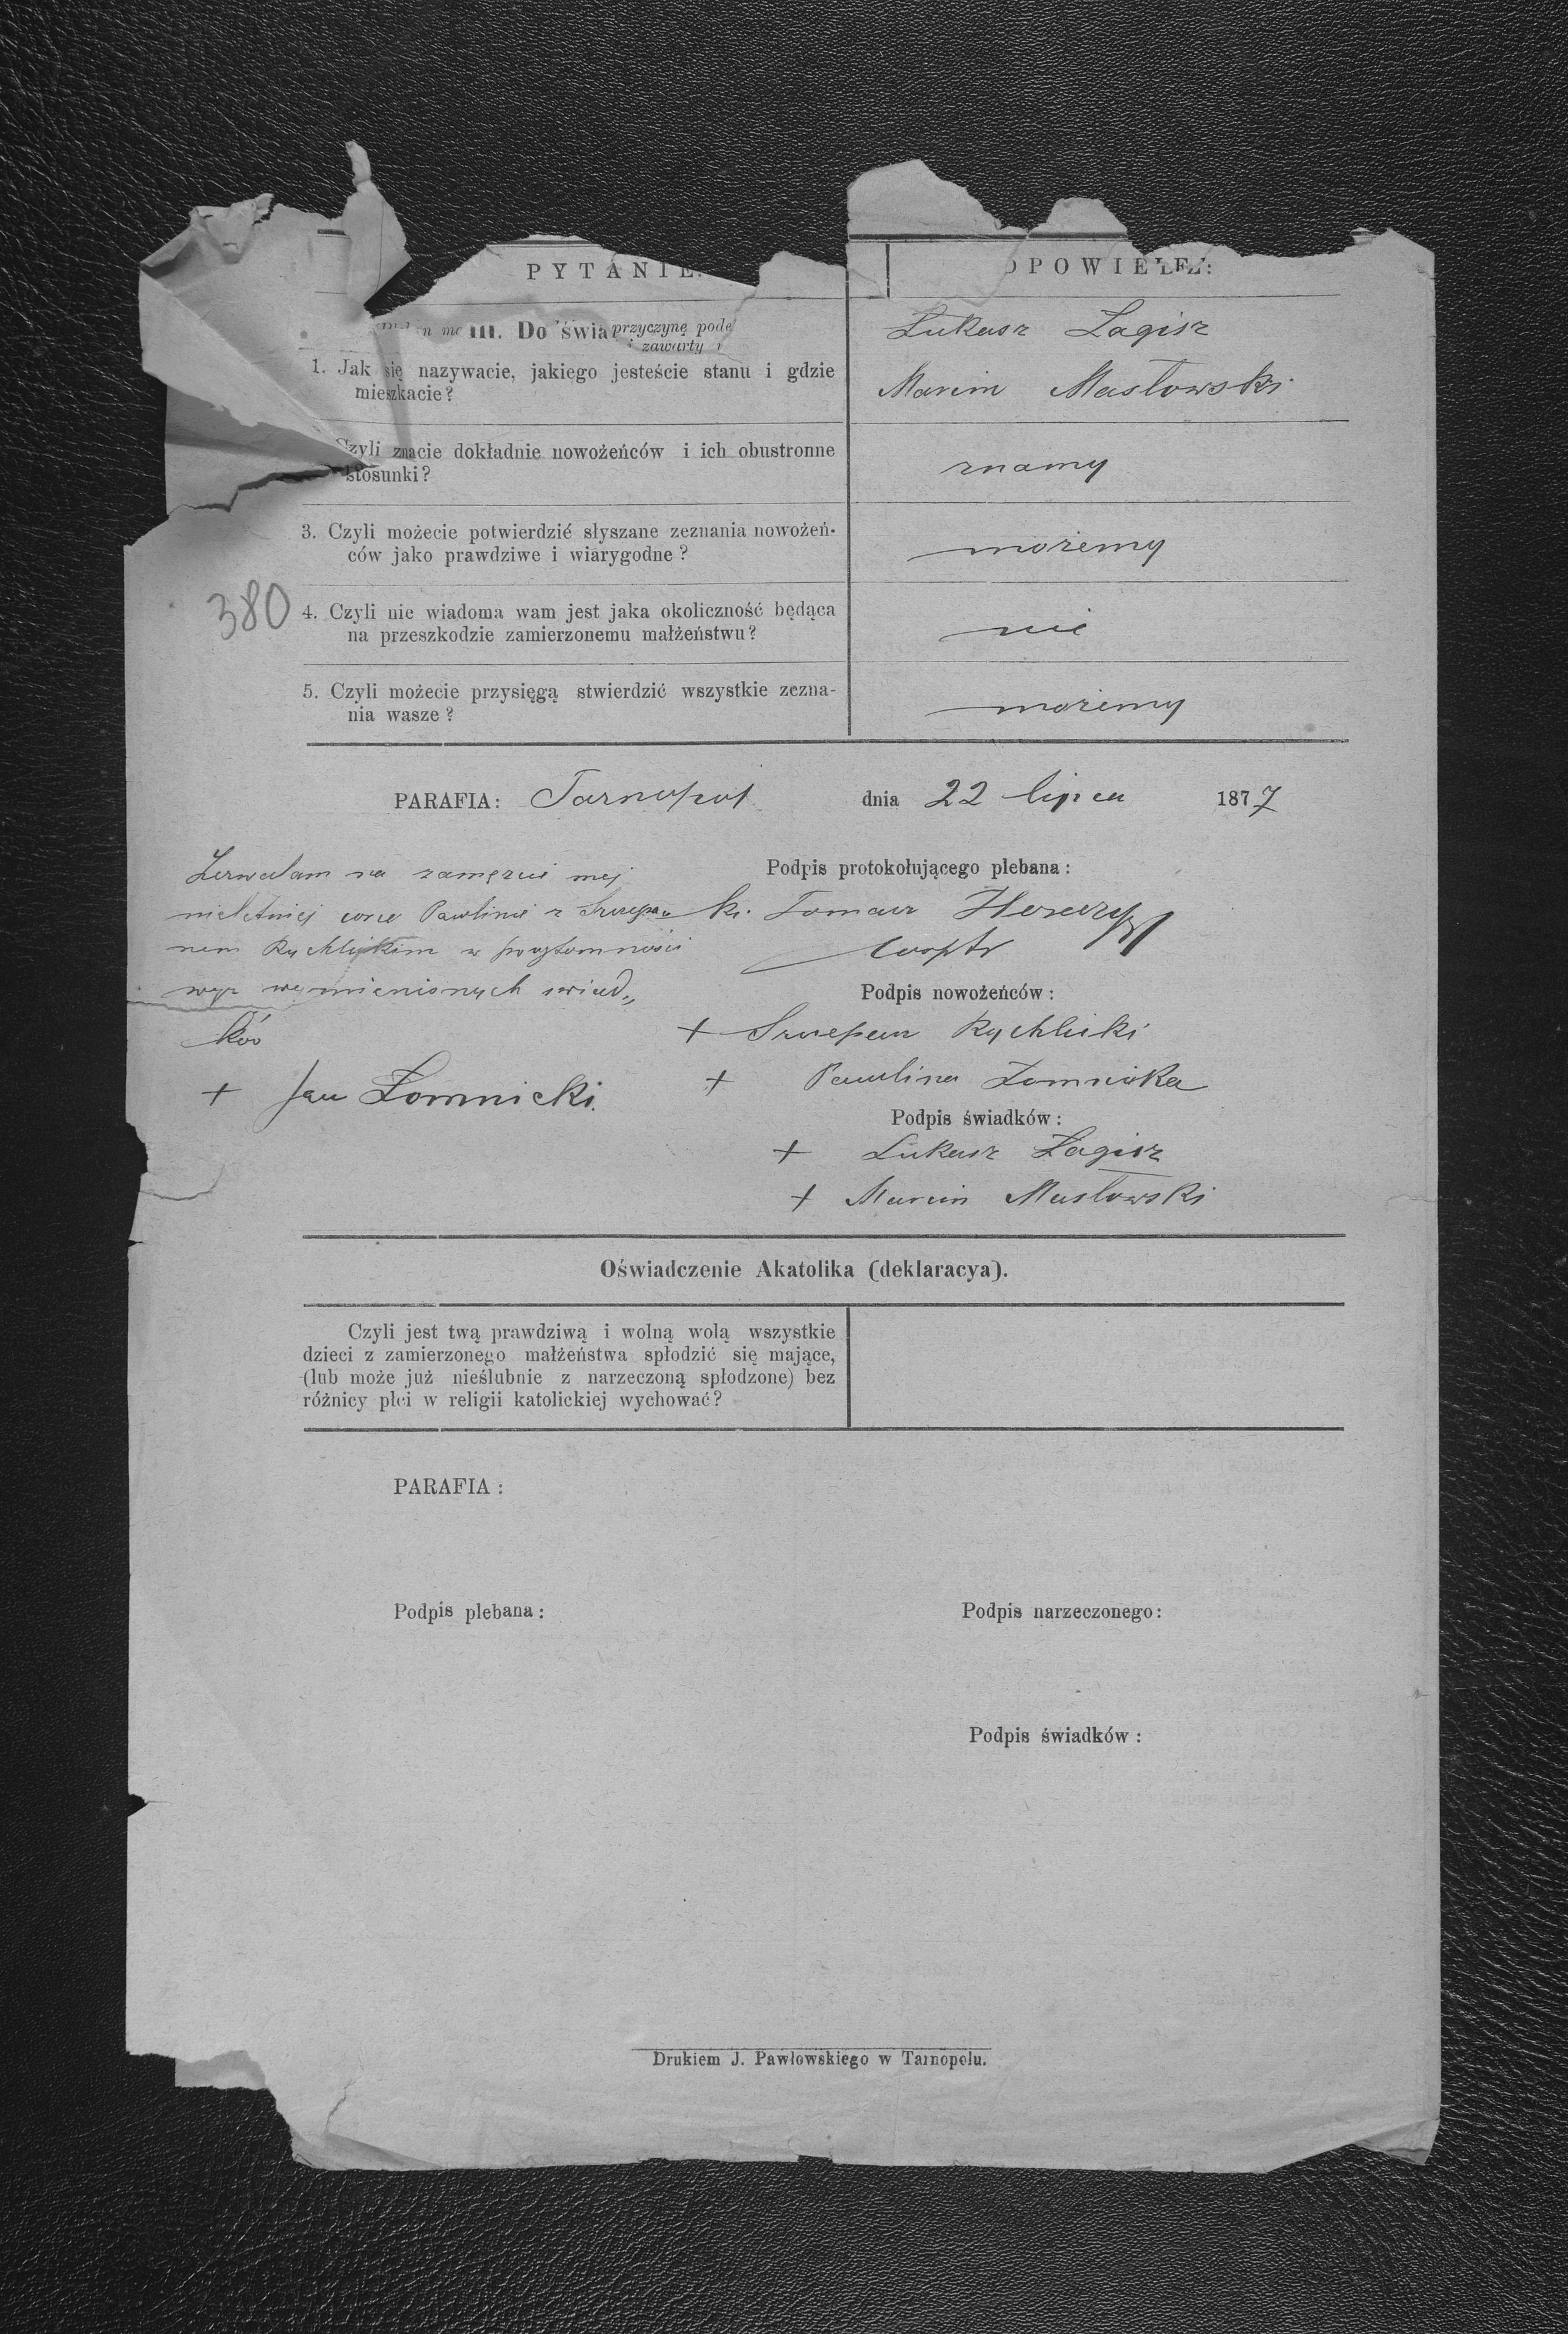 PYTANIE:
ODPOWIEDŹ:
III. Do świa przyczynę podę
zawarty
1. Jak się nazywacie, jakiego jesteście stanu i gdzie
mieszkacie?
Łukasz Łagisz
Marcin Masłowski
Czyli znacie dokładnie nowożeńców i ich obustronne
stosunki?
znamy
3. Czyli możecie potwierdzić słyszane zeznania nowożeń-
ców jako prawdziwe i wiarygodne?
możemy
380
4. Czyli nie wiadoma wam jest jaka okoliczność będąca
na przeszkodzie zamierzonemu małżeństwu?
nie
5. Czyli możecie przysięgą stwierdzić wszystkie zezna-
nia wasze?
możemy
PARAFIA: Tarnopol dnia 22 lipca 1877
Zezwalam na zamęzcie mej
nieletniej corce Pawlinie z Szczepa„
nem Rychlickim w przytomności
wyz wymienionych swiad„
ków
+ Jan Łomnicki
Podpis protokołującego plebana:
Ks. Tomasz
Cooptr
Podpis nowożeńców:
+ Szczepan Rychlicki
+ Pawlina Łomnicka
Podpis świadków:
+ Łukasz Łagisz
+ Marcin Masłowski
Oświadczenie Akatolika (deklaracya).
Czyli jest twą prawdziwą i wolną wolą wszystkie
dzieci z zamierzonego małżeństwa spłodzić się mające,
(lub może już nieślubnie z narzeczoną spłodzone) bez
różnicy płci w religii katolickiej wychować?
PARAFIA:
Podpis plebana:
Podpis narzeczonego:
Podpis świadków:
Drukiem J. Pawłowskiego w Tarnopolu.